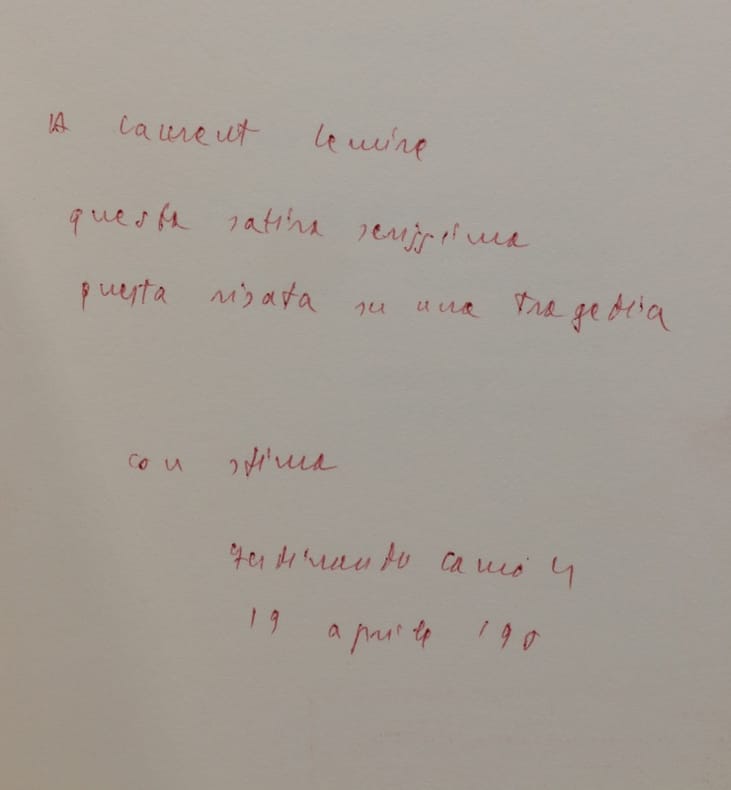 A Laurent Lemire
questa satira serissima
questa risata su una tragedia
con stima
Ferdinando Camon
19 aprile '90